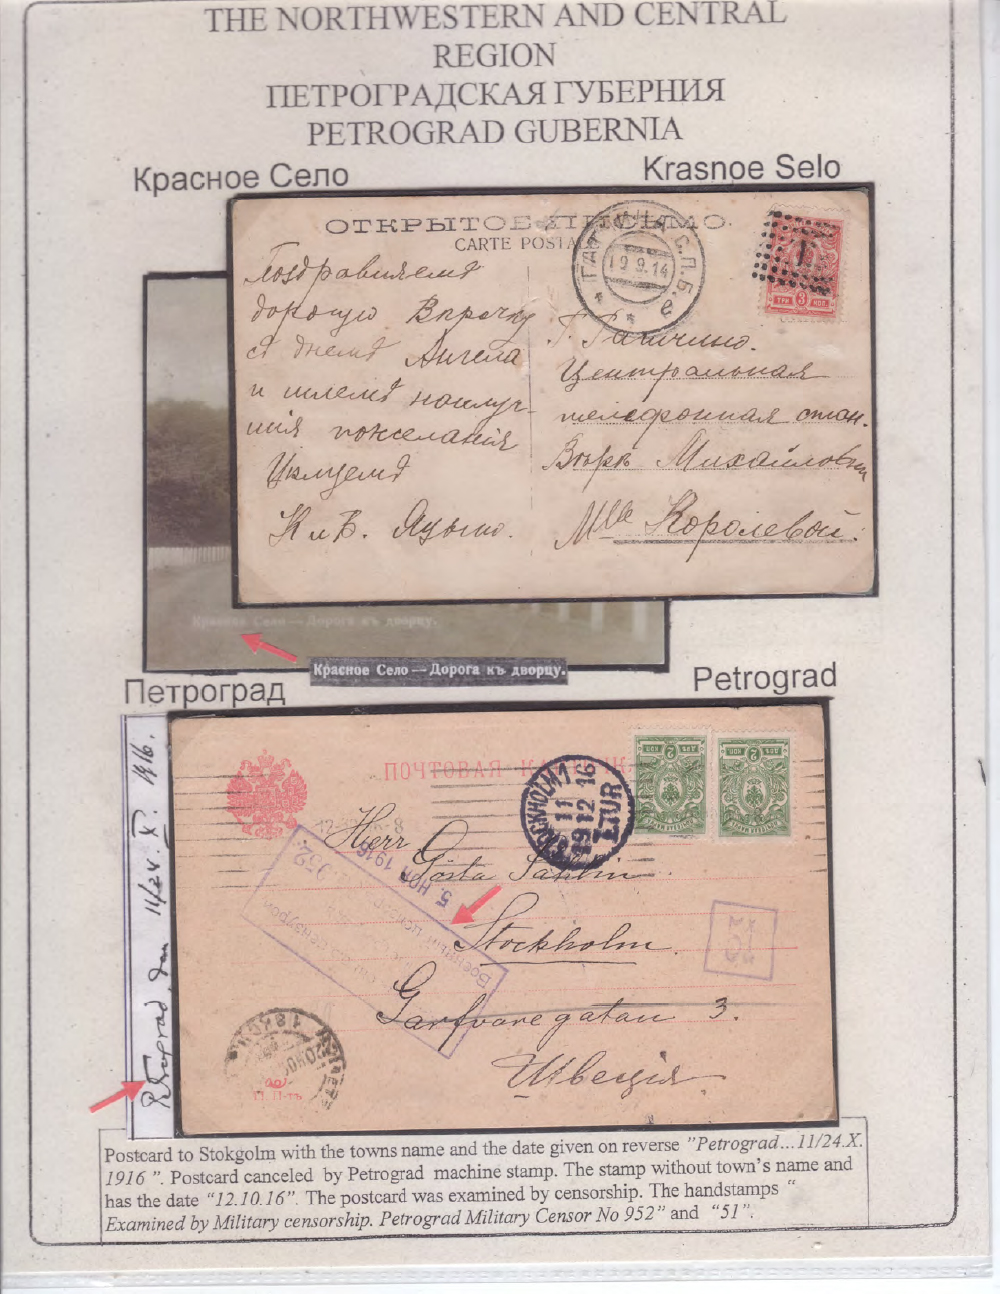 THE NORTHWESTERN AND CENTRAL
REGION
ПЕТРОГРАДСКАЯ ГУБЕРНИЯ
PETROGRAD GUBERNIA
Красное Село
Krasnoe Selo
ОТКРЫТОЕ ПИСЬМО.
CARTE POSTA
ГАТЧИНА С.П.Б.
19.9.14
ТРИ 3 КОП
Поздравляемъ
дорогую Вѣрочку
съ днемъ Ангела
и шлемъ наилуч-
шія пожеланія
Цѣлуемъ
К и В.
Г. Гатчино.
Центральная
телефонная стан.
Вѣрѣ Михайловнѣ
Mlle Королевой.
Красное Село — Дорога къ дворцу.
Красное Село — Дорога къ дворцу.
Петроград
Petrograd
Petrograd, den 11/24. X. 1916.
ПОЧТОВАЯ К
STOCKHOLM 1
11
1912 16
1 TUR
2
2
Herr Gösta Sahlin
5. НОЯ 1916
952.
Stockholm
Garfvaregatan 3.
Швеція
Postcard to Stokgolm with the towns name and the date given on reverse "Petrograd...11/24.X.
1916 ". Postcard canceled by Petrograd machine stamp. The stamp without town's name and
has the date "12.10.16". The postcard was examined by censorship. The handstamps "
Examined by Military censorship. Petrograd Military Censor No 952" and "51".